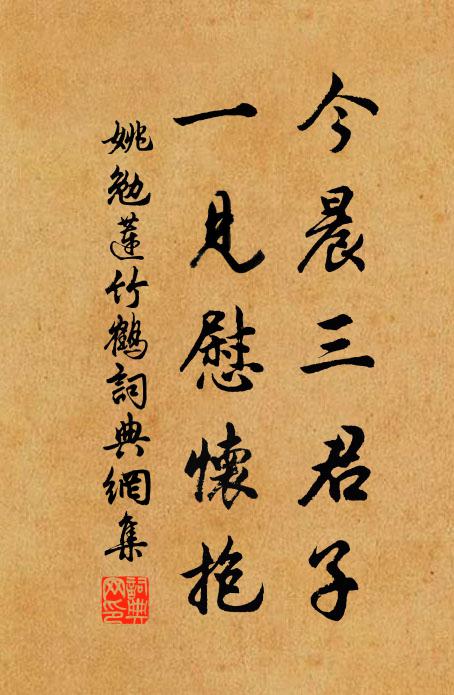 今晨三君子
一見慰懷抱
姚勉蓮竹鶴詞典網集
詞典
网印